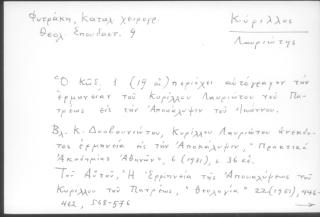 Φυτράκη, Κατάλ. χειρογρ.
Θεολ. Σπουδαστ. 9
Κύριλλος
Λαυριώτης
Ὁ Κῶδ. 1 (19 αἰ) περιέχει αὐτόγραφον τὴν
ἑρμηνείαν τοῦ Κυρίλλου Λαυριώτου τοῦ Πα-
τρέως εἰς τὴν Ἀποκάλυψιν τοῦ Ἰωάννου.
Βλ. Κ. Δυοβουνιώτου, Κυρίλλου Λαυριώτου ἀνέκδο-
τος ἑρμηνεία εἰς τὴν Ἀποκάλυψιν, "Πρακτικὰ
Ἀκαδημίας Ἀθηνῶν", 6 (1931), σ. 36 ἑξ.
Τοῦ Αὐτοῦ, Ἡ Ἑρμηνεία τῆς Ἀποκαλύψεως τοῦ
Κυρίλλου τοῦ Πατρέως, "Θεολογία" 22 (1951), 446-
462, 568-576